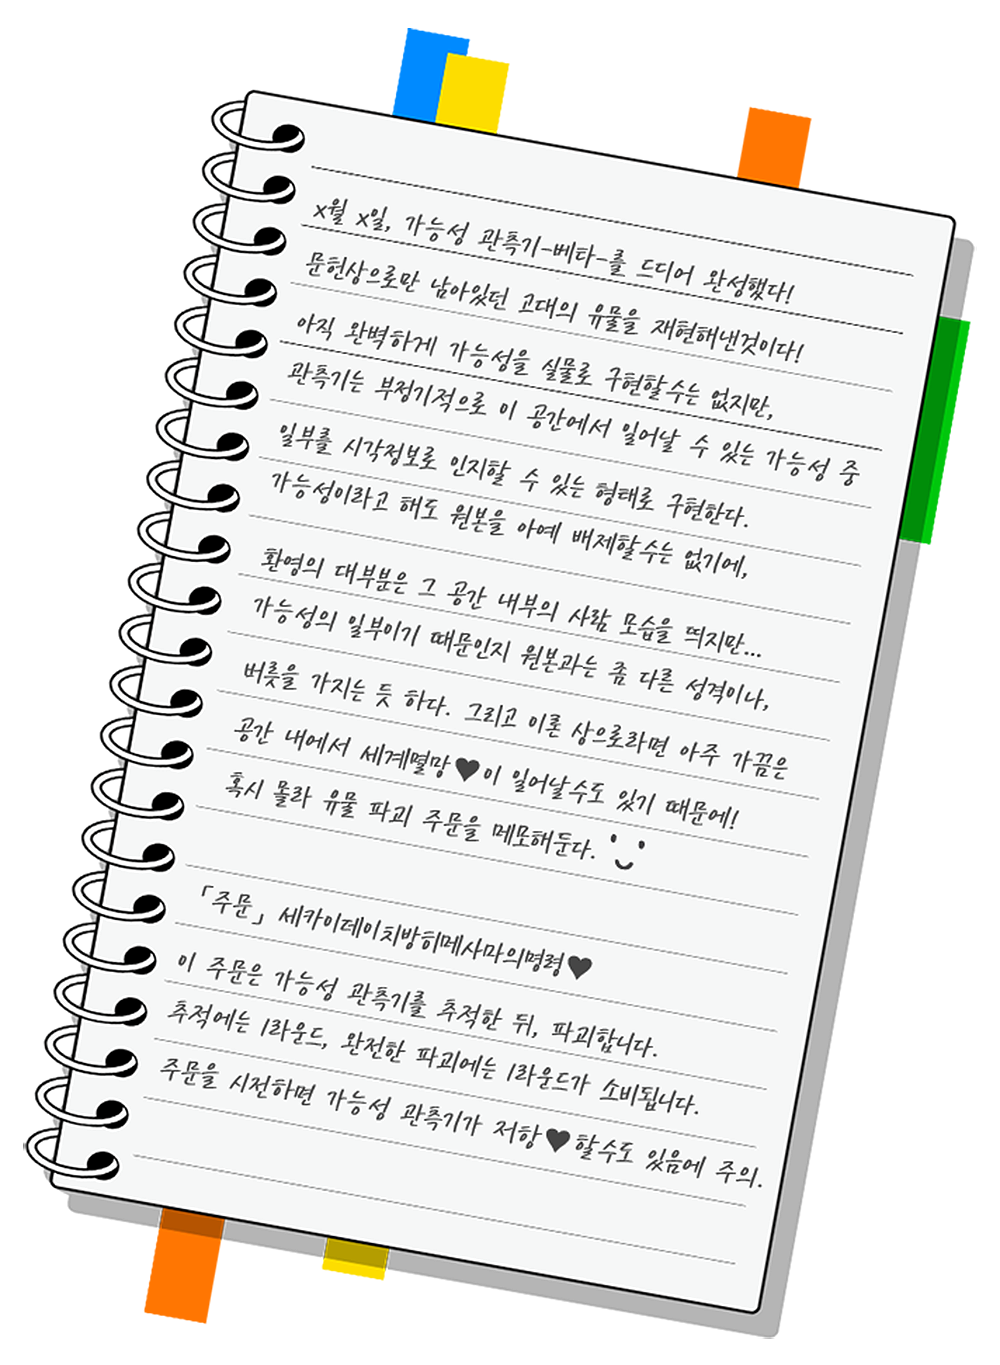 x월 x일, 가능성 관측기-베타-를 드디어 완성했다!
문헌상으로만 남아있던 고대의 유물을 재현해낸것이다!
아직 완벽하게 가능성을 실물로 구현할수는 없지만,
관측기는 부정기적으로 이 공간에서 일어날 수 있는 가능성 중
일부를 시각정보로 인지할 수 있는 형태로 구현한다.
가능성이라고 해도 원본을 아예 배제할수는 없기에,
환영의 대부분은 그 공간 내부의 사람 모습을 띄지만...
가능성의 일부이기 때문인지 원본과는 좀 다른 성격이나,
버릇을 가지는 듯 하다. 그리고 이론 상으로라면 아주 가끔은
공간 내에서 세계멸망♥이 일어날수도 있기 때문에!
혹시 몰라 유물 파괴 주문을 메모해둔다.
「주문」 세카이데이치방히메사마의명령♥
이 주문은 가능성 관측기를 추적한 뒤, 파괴합니다.
추적에는 1라운드, 완전한 파괴에는 1라운드가 소비됩니다.
주문을 시전하면 가능성 관측기가 저항♥할수도 있음에 주의.